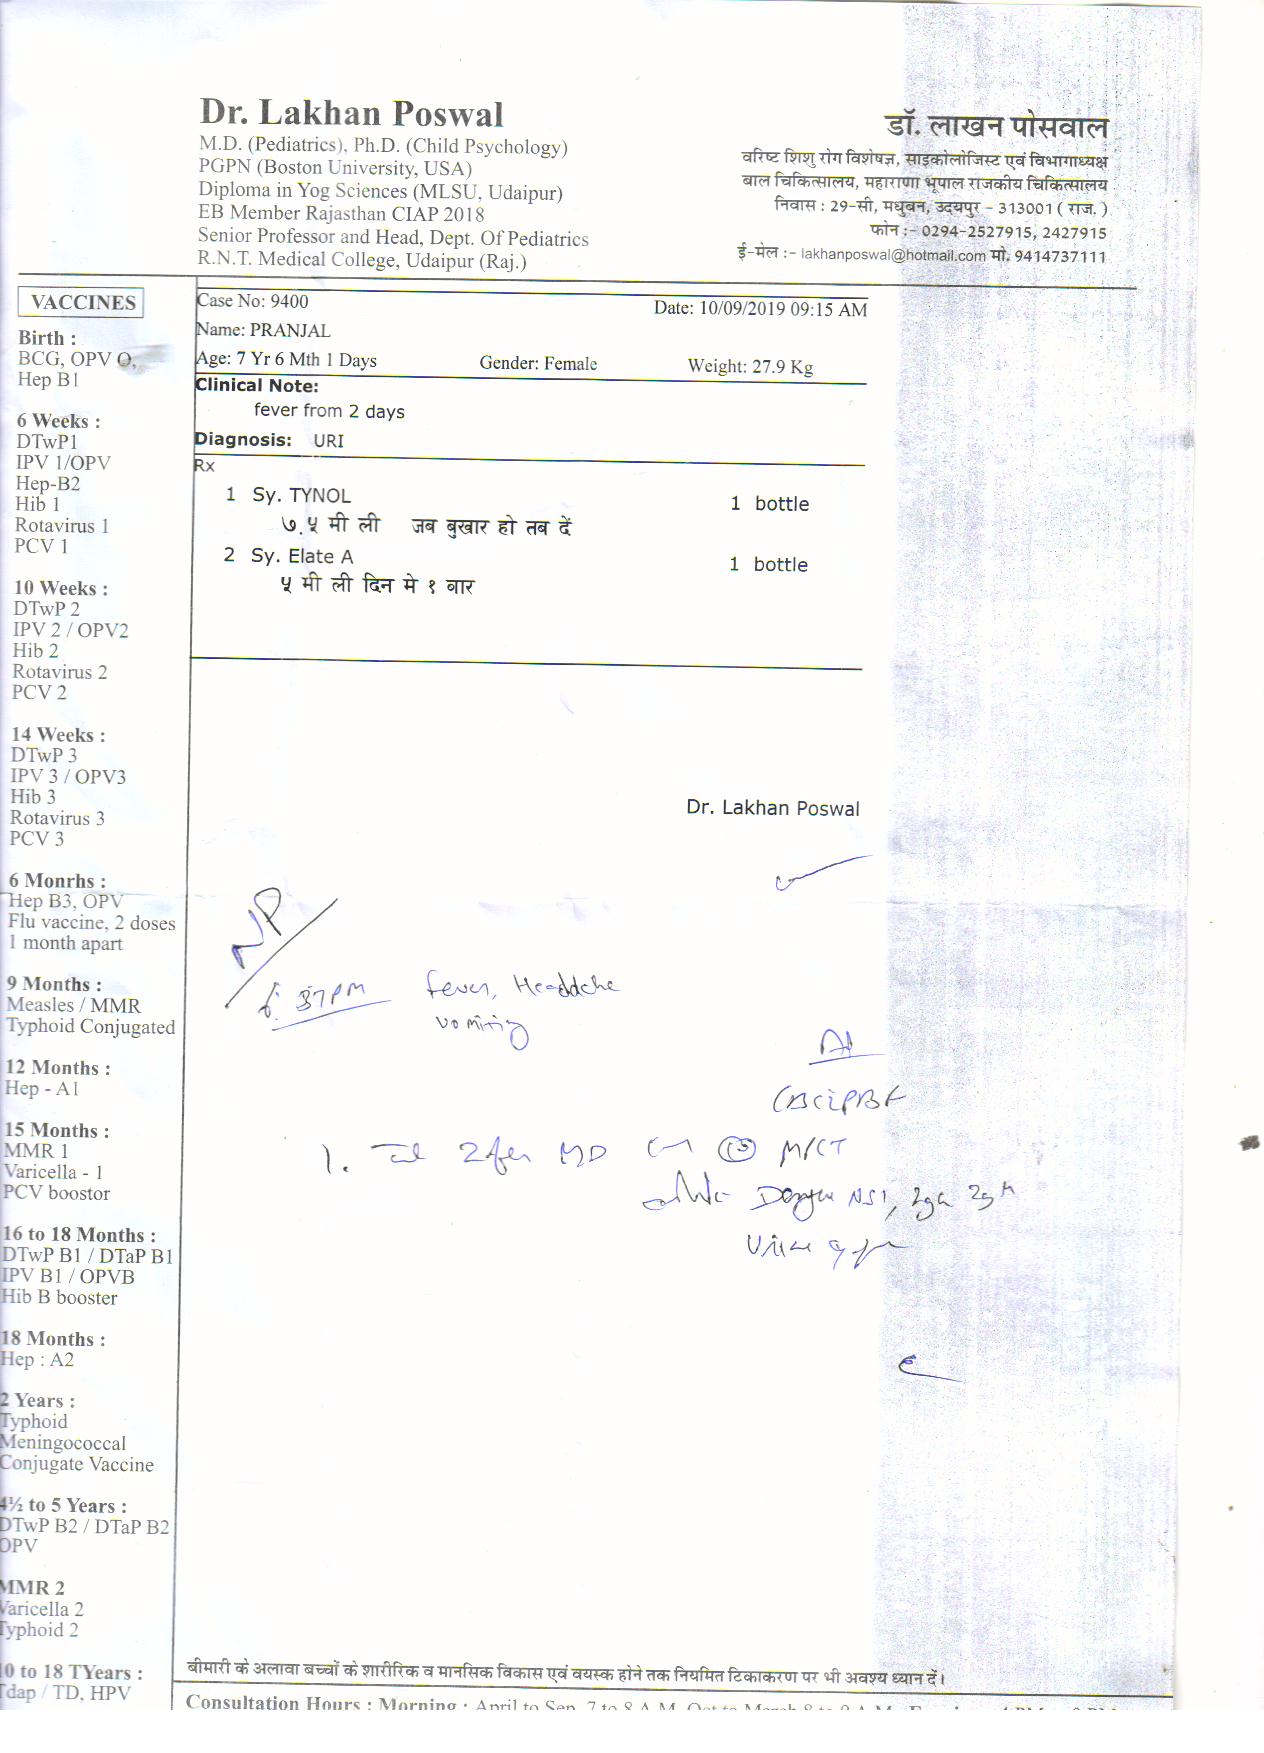 Dr. Lakhan Poswal
M.D. (Pediatrics), Ph.D. (Child Psychology)
PGPN (Boston University, USA)
Diploma in Yog Sciences (MLSU, Udaipur)
EB Member Rajasthan CIAP 2018
Senior Professor and Head, Dept. Of Pediatrics
R.N.T. Medical College, Udaipur (Raj.)
डॉ. लाखन पोसवाल
वरिष्ट शिशु रोग विशेषज्ञ, साइकोलोजिस्ट एवं विभागाध्यक्ष
बाल चिकित्सालय, महाराणा भूपाल राजकीय चिकित्सालय
निवास : 29-सी, मधुबन, उदयपुर - 313001 ( राज. )
फोन :- 0294-2527915, 2427915
ई-मेल :- lakhanposwal@hotmail.com मो. 9414737111
VACCINES
Birth :
BCG, OPV O,
Hep B1
6 Weeks :
DTwP1
IPV 1/OPV
Hep-B2
Hib 1
Rotavirus 1
PCV 1
10 Weeks :
DTwP 2
IPV 2 / OPV2
Hib 2
Rotavirus 2
PCV 2
14 Weeks :
DTwP 3
IPV 3 / OPV3
Hib 3
Rotavirus 3
PCV 3
6 Monrhs :
Hep B3, OPV
Flu vaccine, 2 doses
1 month apart
9 Months :
Measles / MMR
Typhoid Conjugated
12 Months :
Hep - A1
15 Months :
MMR 1
Varicella - 1
PCV boostor
16 to 18 Months :
DTwP B1 / DTaP B1
IPV B1 / OPVB
Hib B booster
18 Months :
Hep : A2
2 Years :
Typhoid
Meningococcal
Conjugate Vaccine
4½ to 5 Years :
DTwP B2 / DTaP B2
OPV
MMR 2
Varicella 2
Typhoid 2
0 to 18 TYears :
Tdap / TD, HPV
Case No: 9400 Date: 10/09/2019 09:15 AM
Name: PRANJAL
Age: 7 Yr 6 Mth 1 Days Gender: Female Weight: 27.9 Kg
Clinical Note:
fever from 2 days
Diagnosis: URI
Rx
1 Sy. TYNOL 1 bottle
७.५ मी ली जब बुखार हो तब दें
2 Sy. Elate A 1 bottle
५ मी ली दिन मे १ बार
Dr. Lakhan Poswal
6:37PM fever, Headache
vomiting
1. MD
Dengue NS1, IgG IgM
Urine
बीमारी के अलावा बच्चों के शारीरिक व मानसिक विकास एवं वयस्क होने तक नियमित टिकाकरण पर भी अवश्य ध्यान दें।
Consultation Hours : Morning : April to Sep. 7 to 8 A.M.